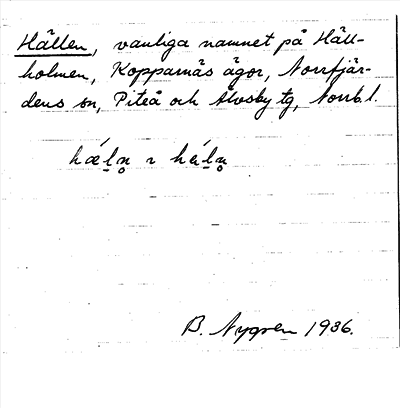 Hällen, vanliga namnet på Häll-
holmen, Kopparnäs ägor, Norrfjär-
dens sn, Piteå och Älvsby tg, Norrb. l.
B. Nygren 1936.